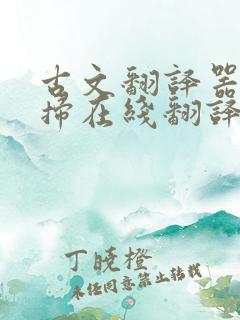 古文翻譯器
掃在綫翻譯
丁曉橙
未經同意禁止轉載